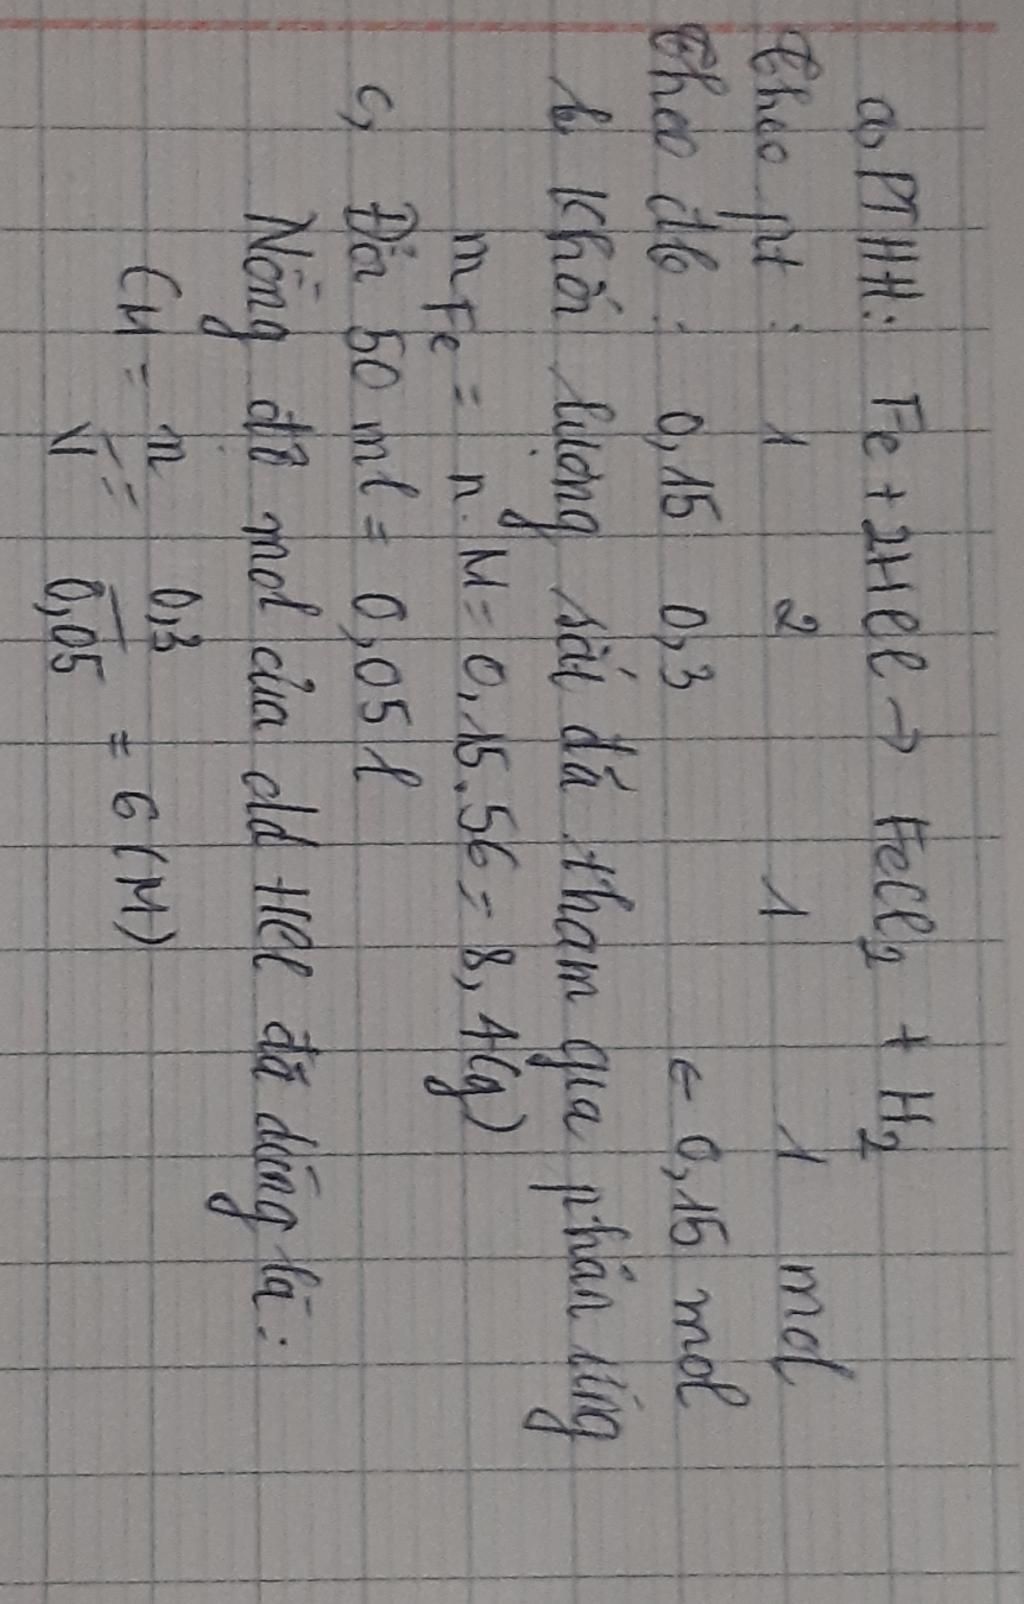 a, PTHH: Fe + 2HCl → FeCl₂ + H₂
Theo pt : 1 2 1 1 mol
Theo đb : 0,15 0,3 ← 0,15 mol
b, Khối lượng sắt đã tham gia phản ứng
m Fe = n . M = 0,15 . 56 = 8,4 (g)
c, Đổi 50 ml = 0,05 l
Nồng độ mol của dd HCl đã dùng là :
CM = n/V = 0,3/0,05 = 6 (M)